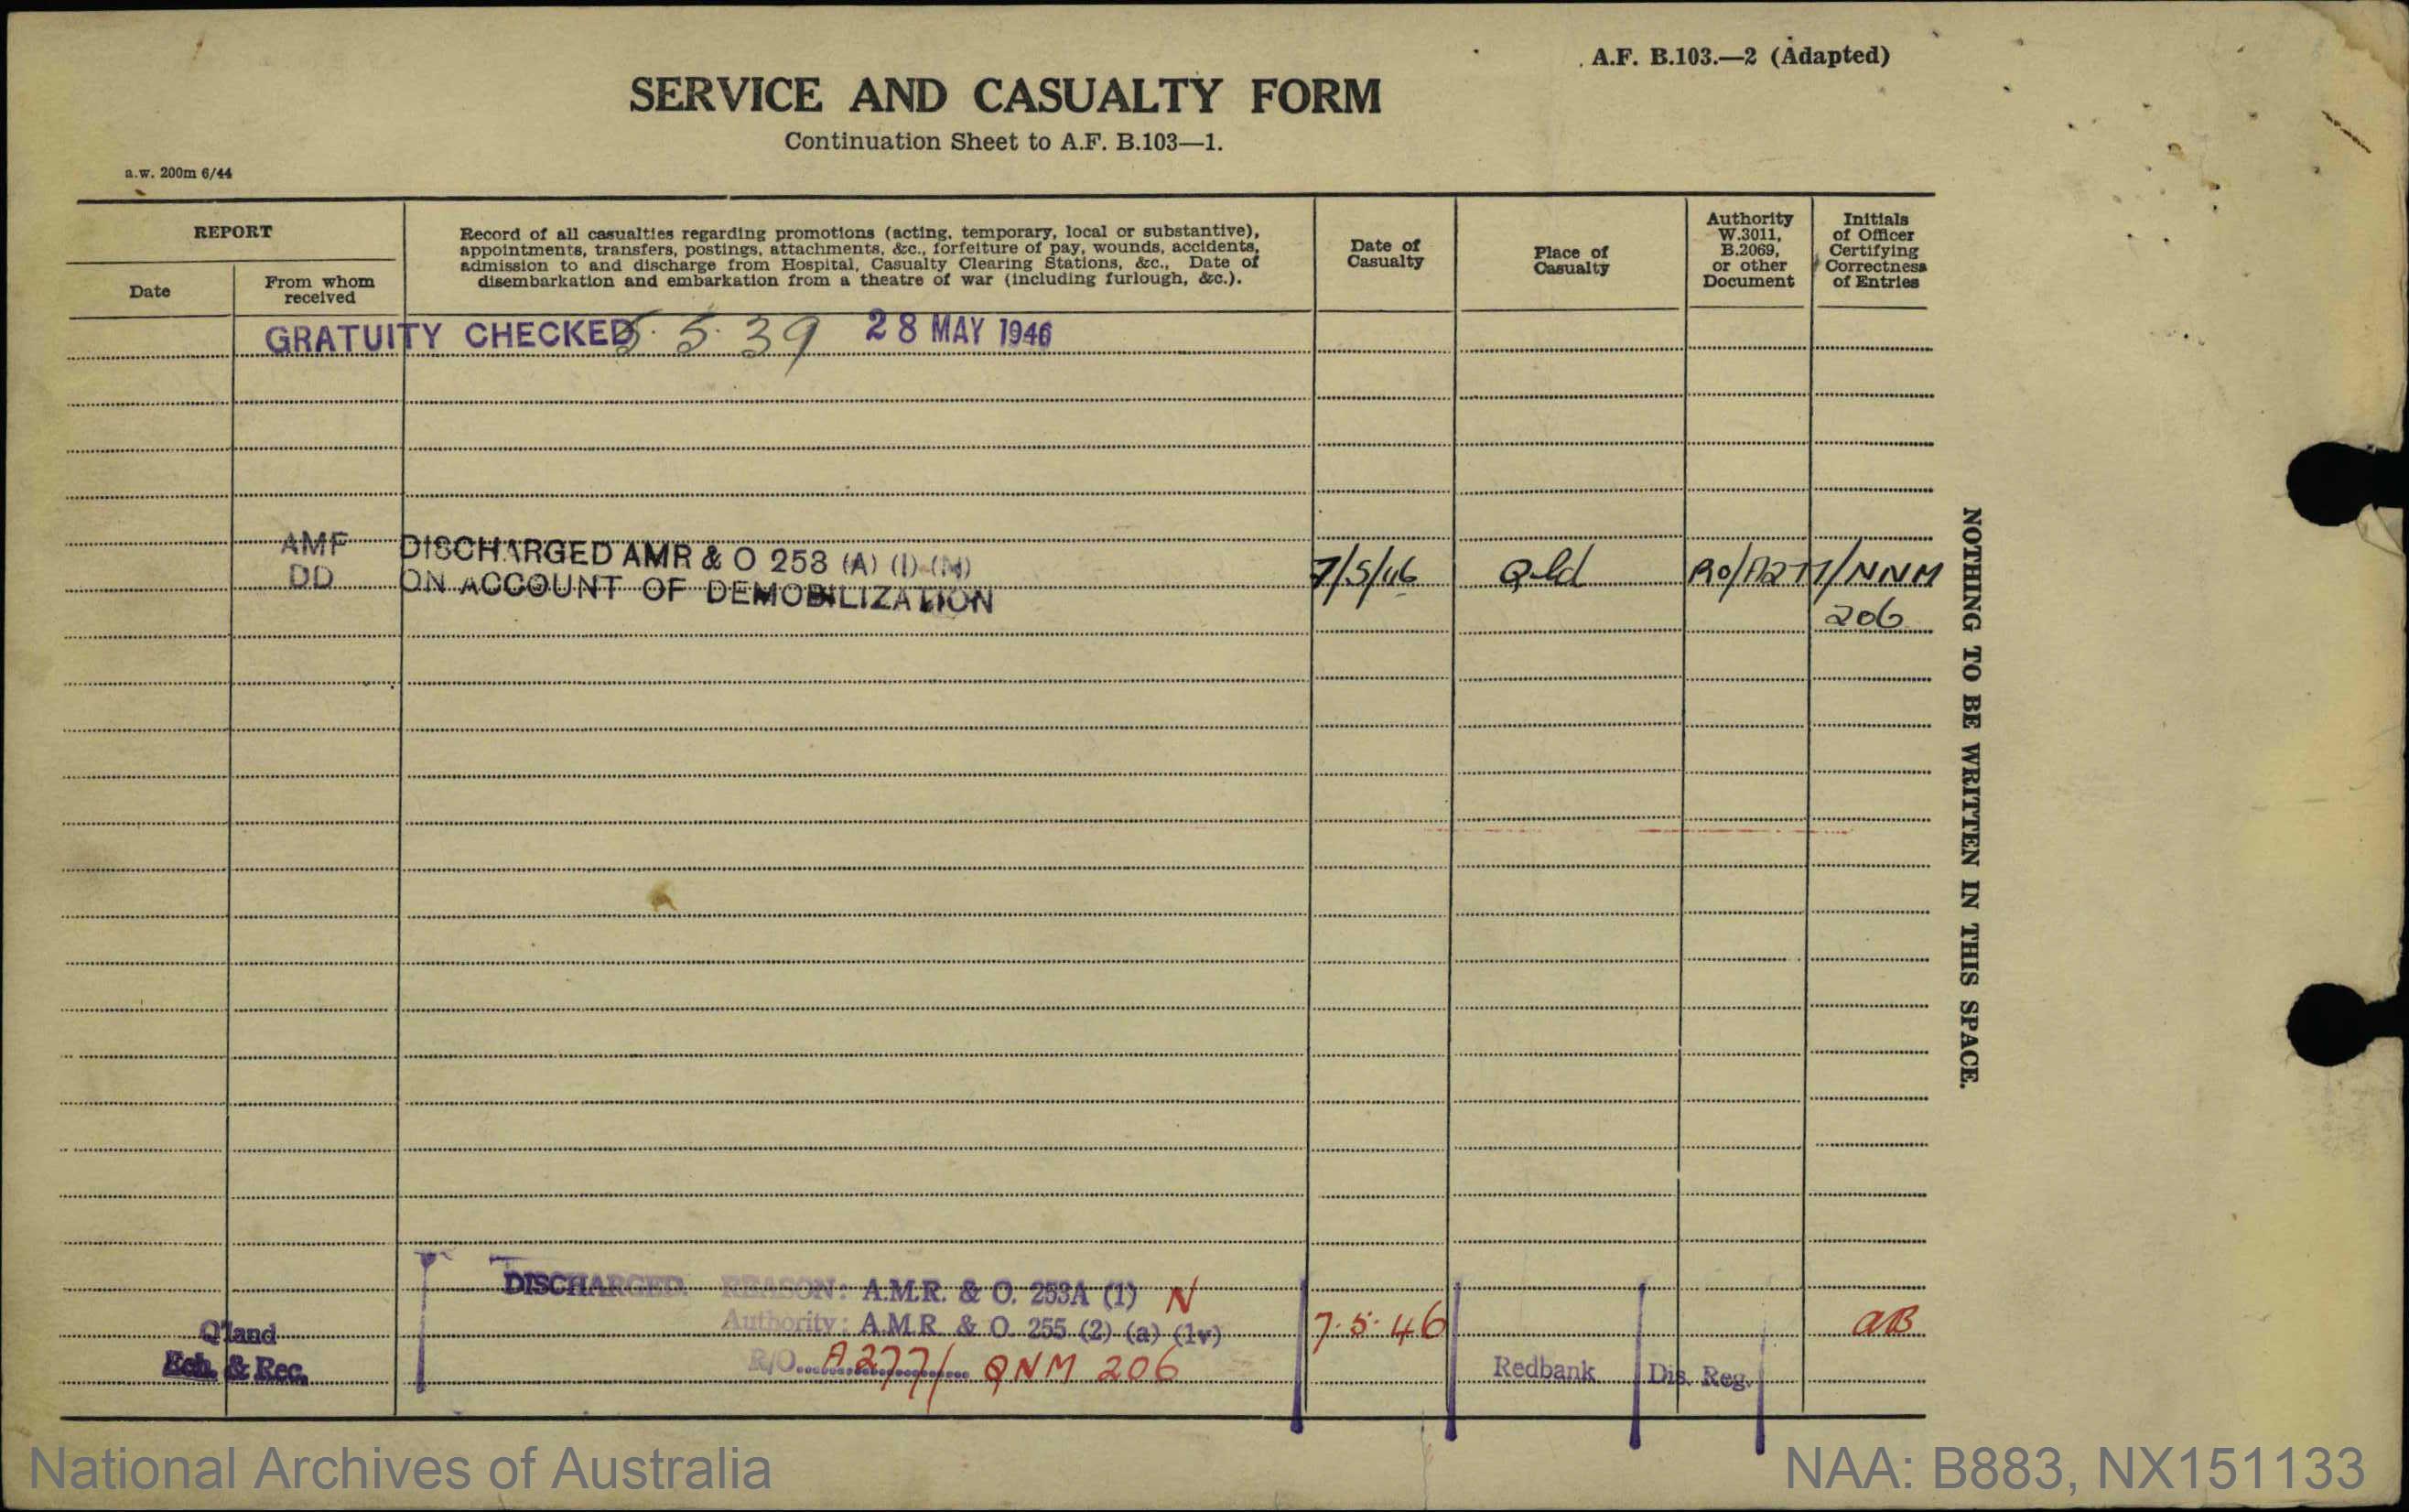 A.F. B.103.—2 (Adapted)
SERVICE AND CASUALTY FORM
Continuation Sheet to A.F. B.103—1.
a.w. 200m 6/44
REPORT
Date
From whom
received
Record of all casualties regarding promotions (acting, temporary, local or substantive),
appointments, transfers, postings, attachments, &c., forfeiture of pay, wounds, accidents,
admission to and discharge from Hospital, Casualty Clearing Stations, &c., Date of
disembarkation and embarkation from a theatre of war (including furlough, &c.).
Date of
Casualty
Place of
Casualty
Authority
W.3011,
B.2069,
or other
Document
Initials
of Officer
Certifying
Correctness
of Entries
GRATUITY CHECKED 5.5.39 28 MAY 1946
AMF DISCHARGED AMR & O 253 (A) (I) (N)
DD ON ACCOUNT OF DEMOBILIZATION 7/5/46 Qld RO/A277/NNM
206
NOTHING TO BE WRITTEN IN THIS SPACE.
DISCHARGED. REASON: A.M.R. & O. 253A (1) N
Q'land Authority: A.M.R. & O. 255 (2) (a) (1v) 7.5.46 AB
Ech. & Rec. R/O A277/ QNM 206 Redbank Dis. Reg.
National Archives of Australia
NAA: B883, NX151133